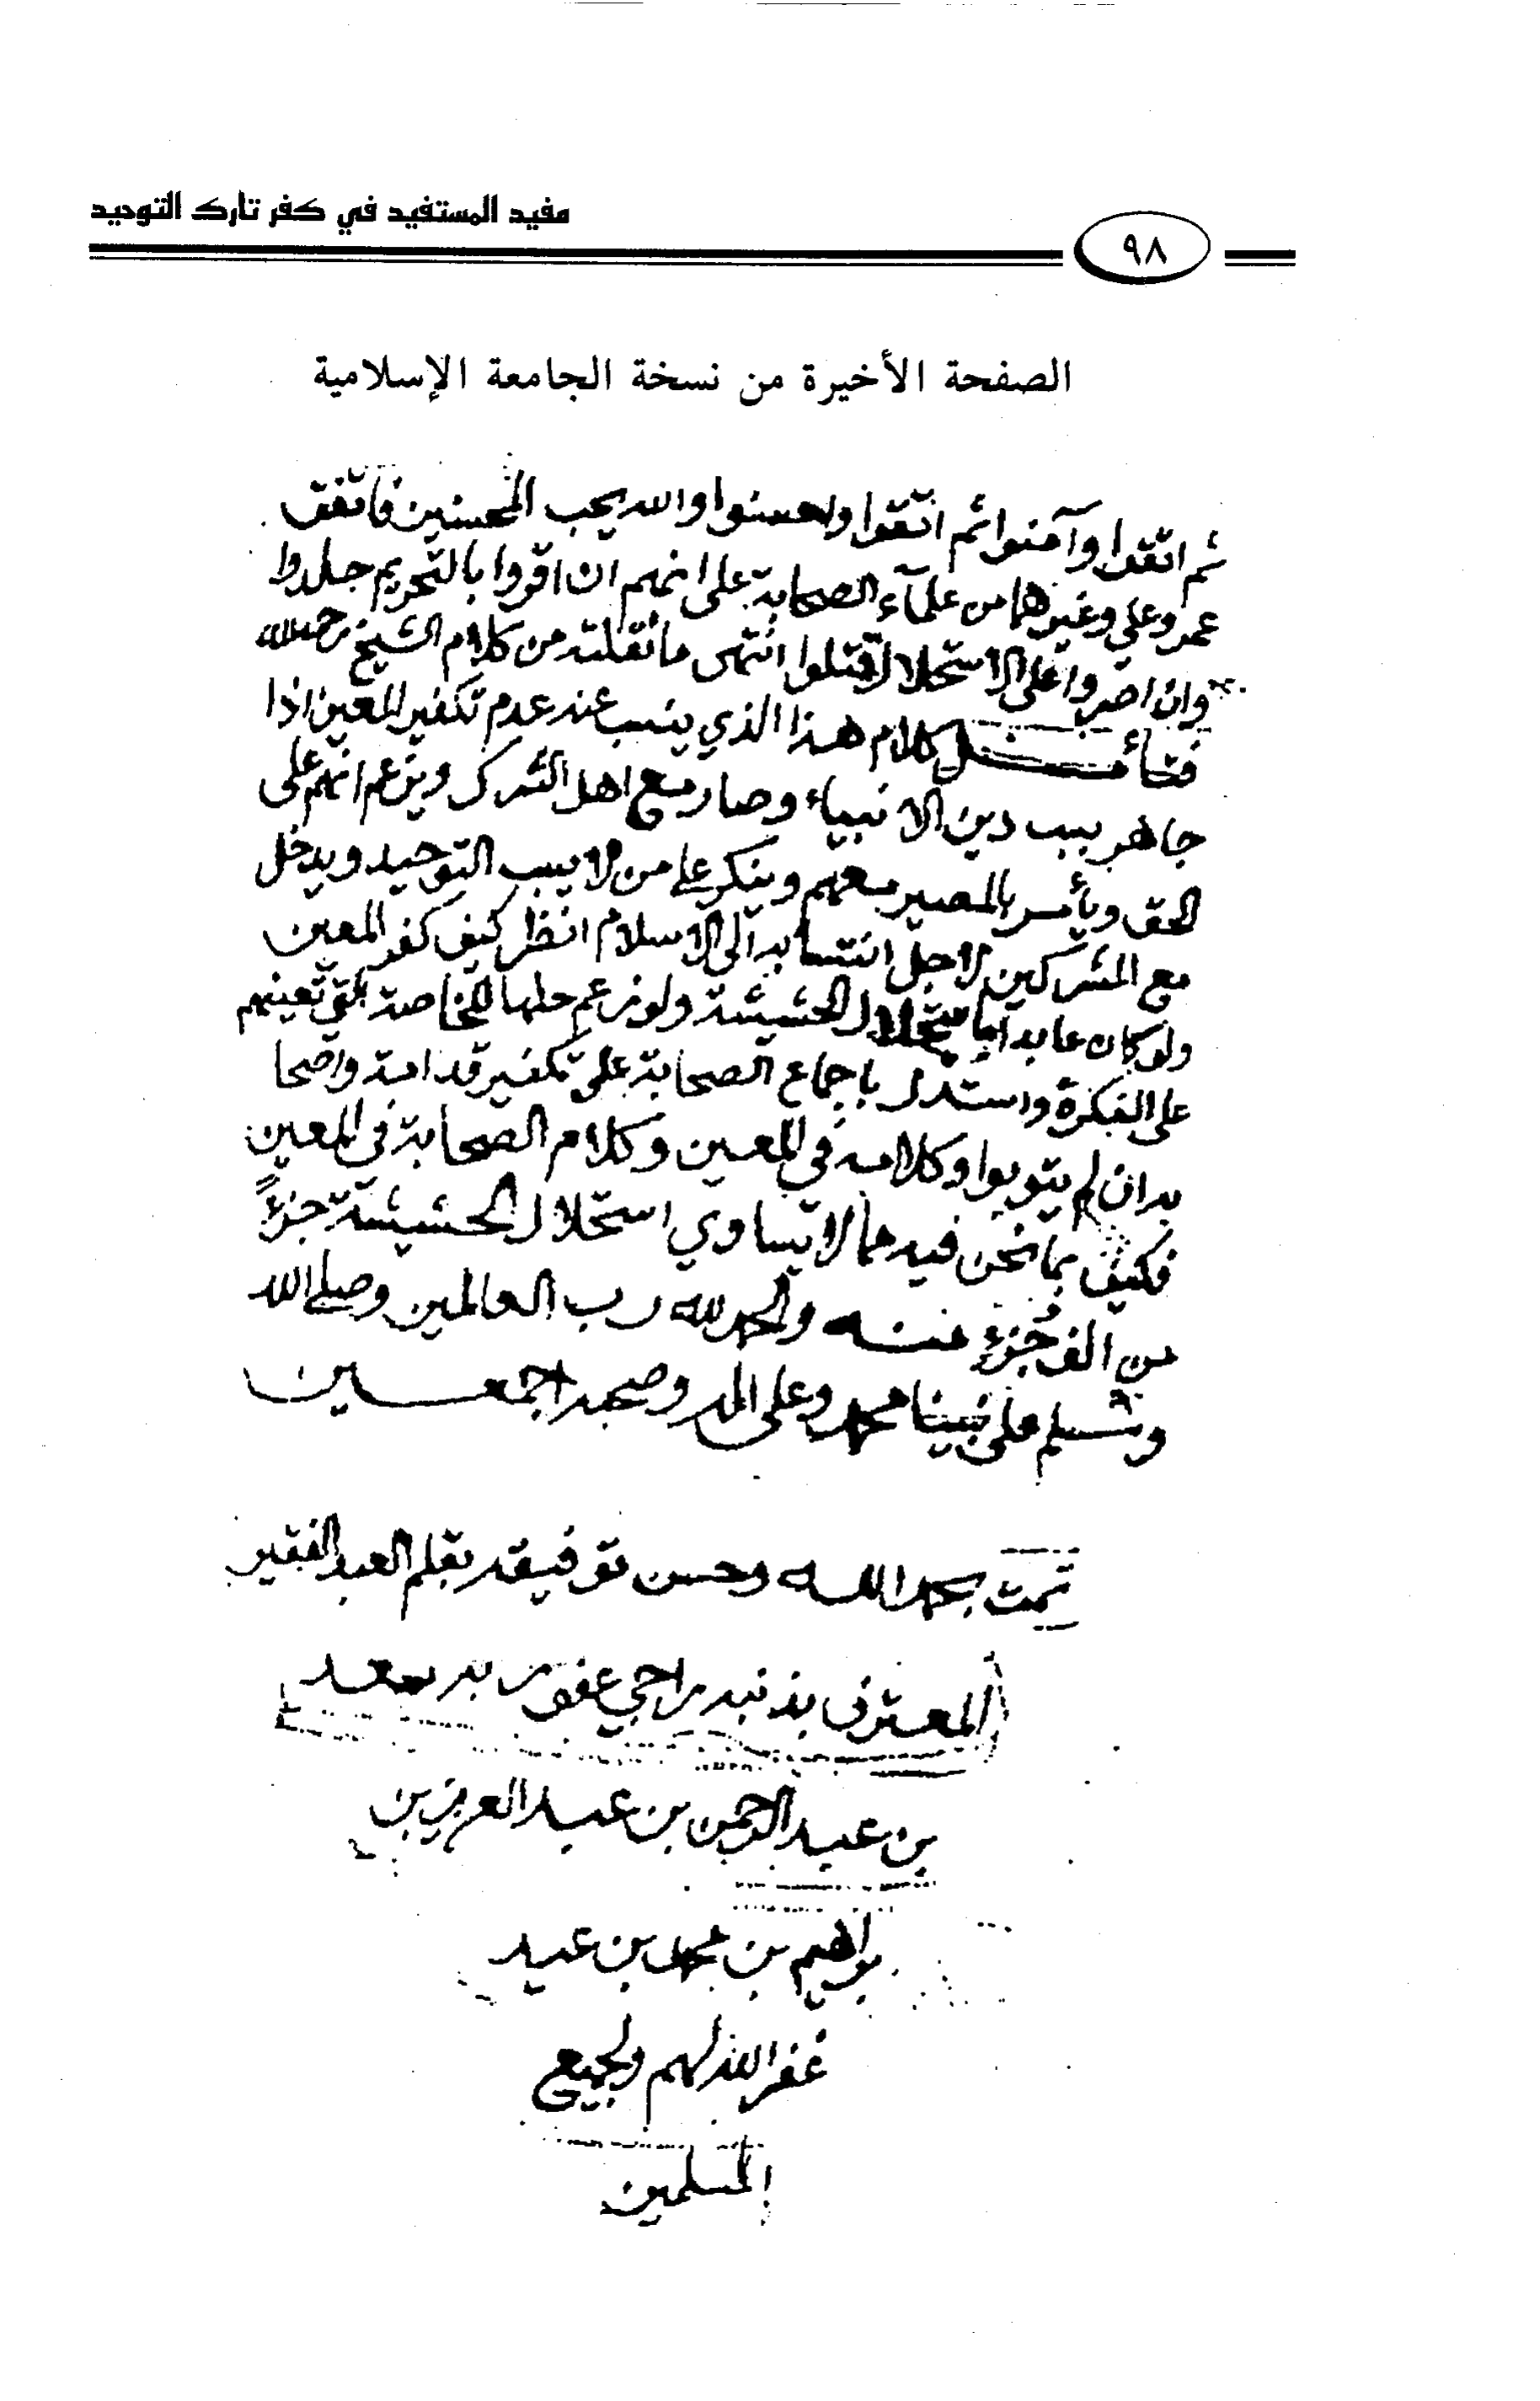 مفيد المستفيد في كفر تارك التوحيد
٩٨
الصفحة الأخيرة من نسخة الجامعة الإسلامية
ثم اتقوا وآمنوا ثم اتقوا واحسنوا والله يحب المحسنين فاتفق
عمر وعلي وغيرهما من علمآء الصحابة على انهم ان اقروا بالتحريم جلدوا
وان اصروا على الاستحلال قتلوا انتهى ما نقلته من كلام الشيخ رحمه الله
فتأمل كلام هذا الذي ينسب عنه عدم تكفير المعين اذا
جاهر بسب دين الانبياء وصار مع اهل الشرك ويزعم انهم على
الحق ويأمر بالمصير معهم وينكر على من لا يسب التوحيد ويدخل
مع المشركين لاجل انتسابه الى الاسلام انظر كيف كفر المعين
ولو كان عابدا باستحلال الحشيشة ولو زعم حلها للخاصة تعينهم
على الفكرة واستدل باجماع الصحابة على تكفير قدامة واصحا
به ان لم يتوبوا وكلامه في المعين وكلام الصحابة في المعين
فكيف بما نحن فيه مما لا يساوي استحلال الحشيشة جزءً
من الف جزء منه والحمد لله رب العالمين وصلى الله
وسلم على نبينا محمد وعلى اله وصحبه اجمعين
تمت بحمد الله وحسن توفيقه بقلم العبد الفقير
المعترف بذنبه راجي عفو ربه سعد
بن عبد الرحمن بن عبد العزيز بن
براهيم بن محمد بن عبيد
غفر الله لهم ولجميع
المسلمين